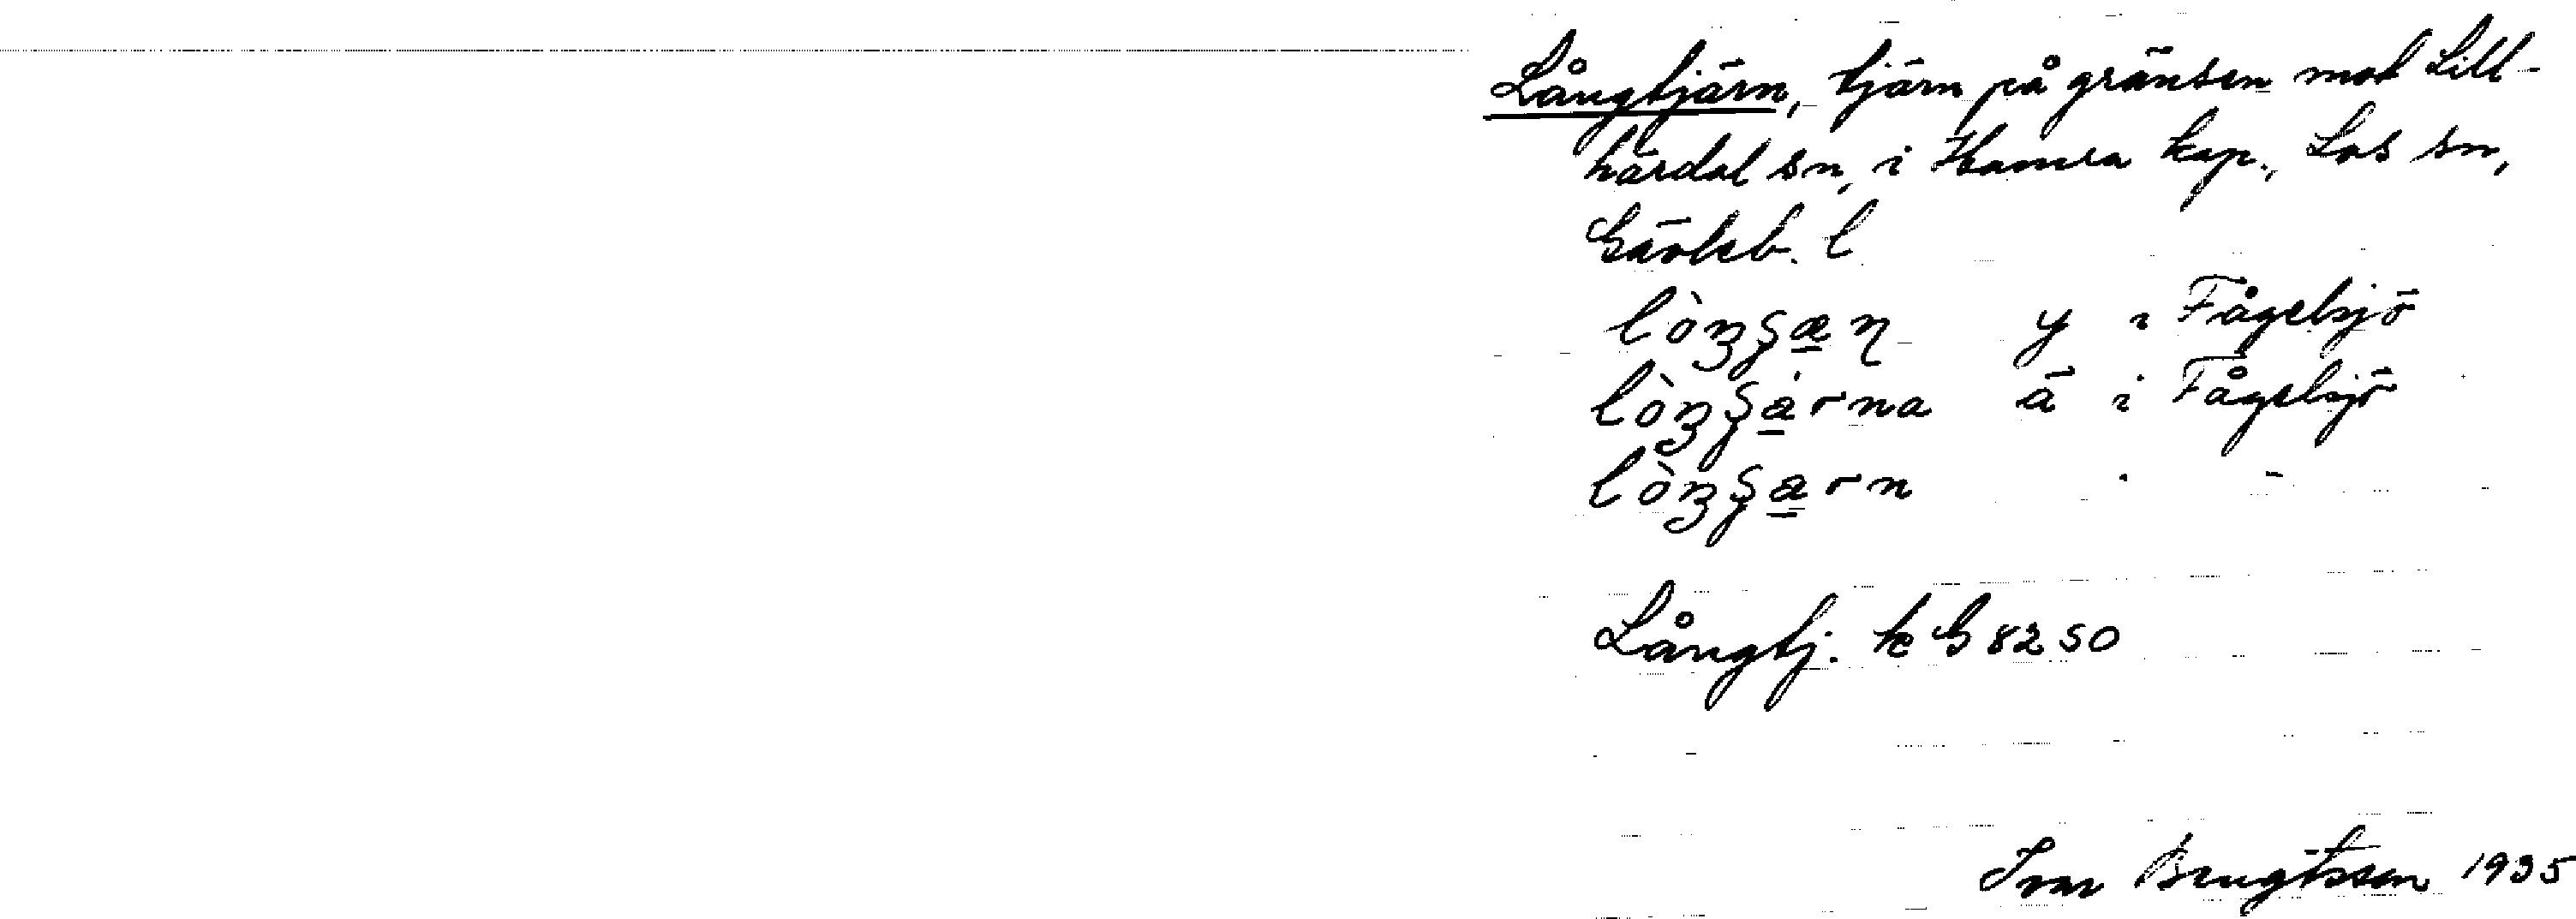 Långtjärn, tjärn på gränsen mot Lill-
härdal sn, i Hamra kap., Los sn,
Gävleb. l
y i Fågelsjö
ä i Fågelsjö
Långtj. k G 8250
Ivar Bengtsson 1935